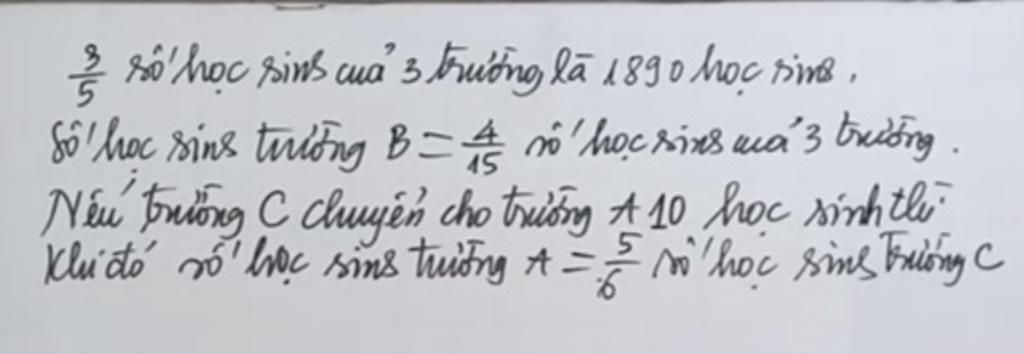 3/5 số học sinh của 3 trường là 1890 học sinh.
Số học sinh trường B = 4/15 số học sinh của 3 trường.
Nếu trường C chuyển cho trường A 10 học sinh thì
khi đó số học sinh trường A = 5/6 số học sinh trường C